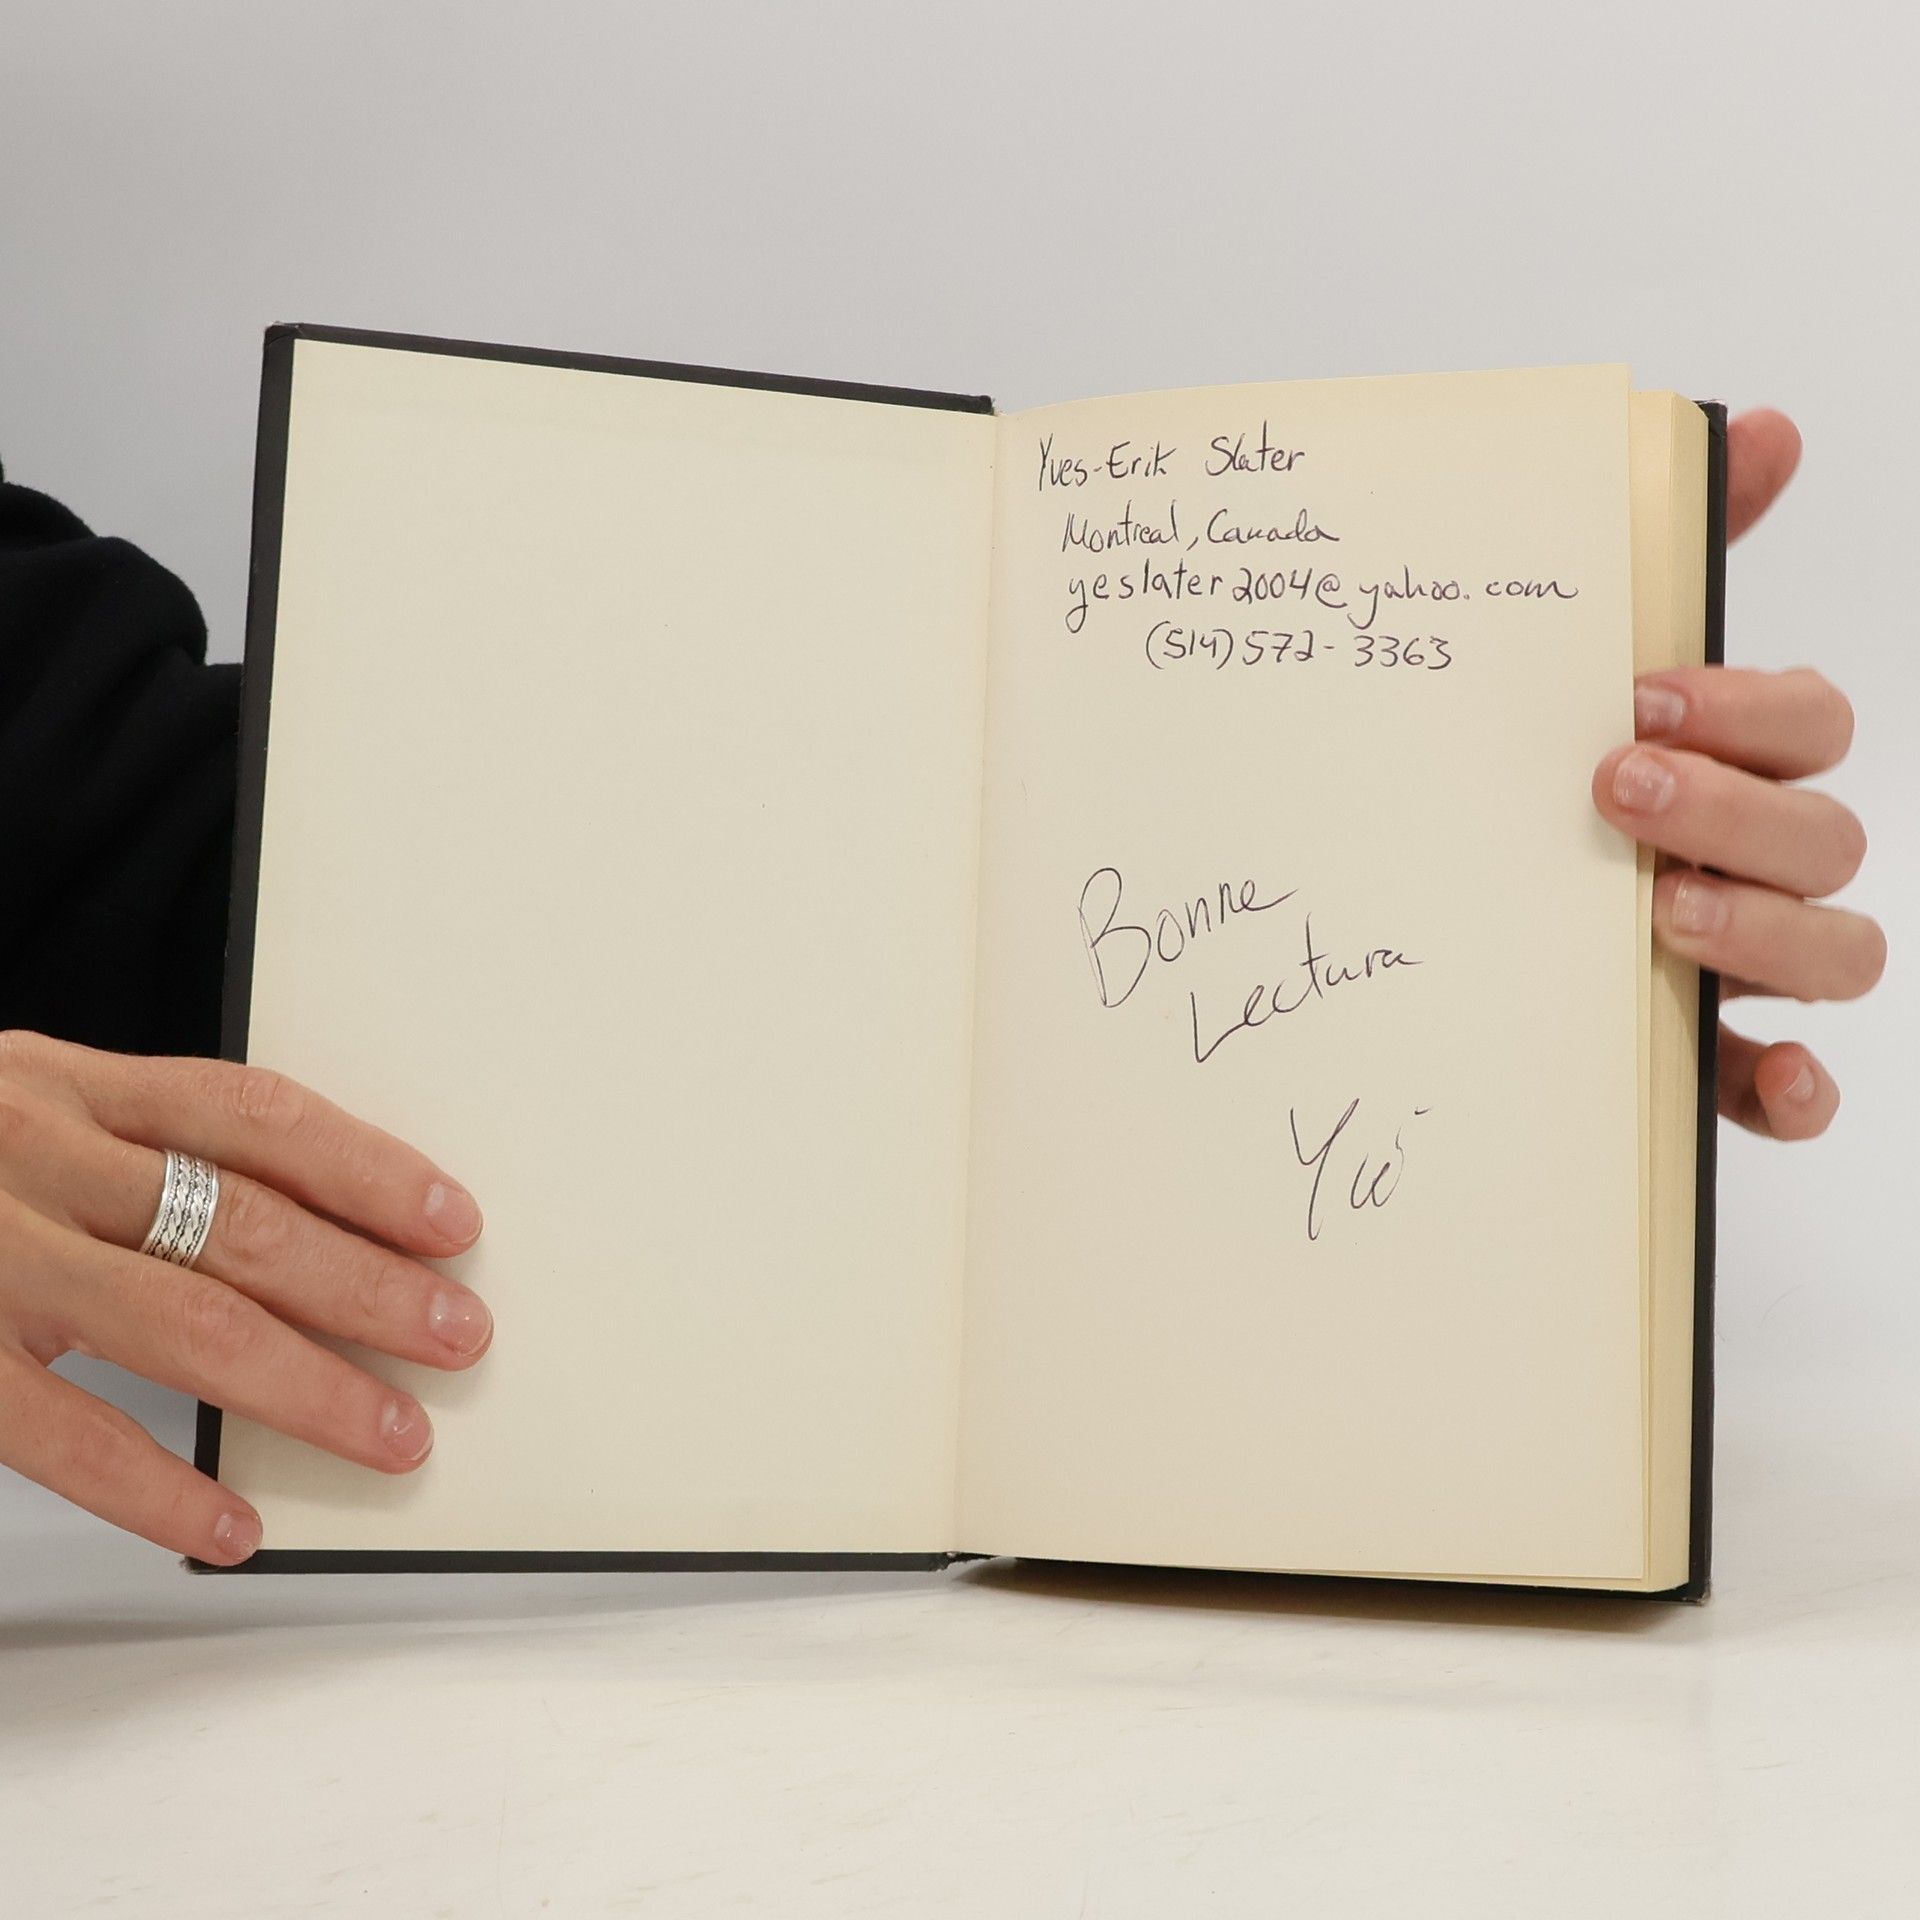 Yves-Erik Slater
Montreal, Canada
yeslater2004@yahoo.com
(514) 572-3363
Bonne
Lectura
Yves